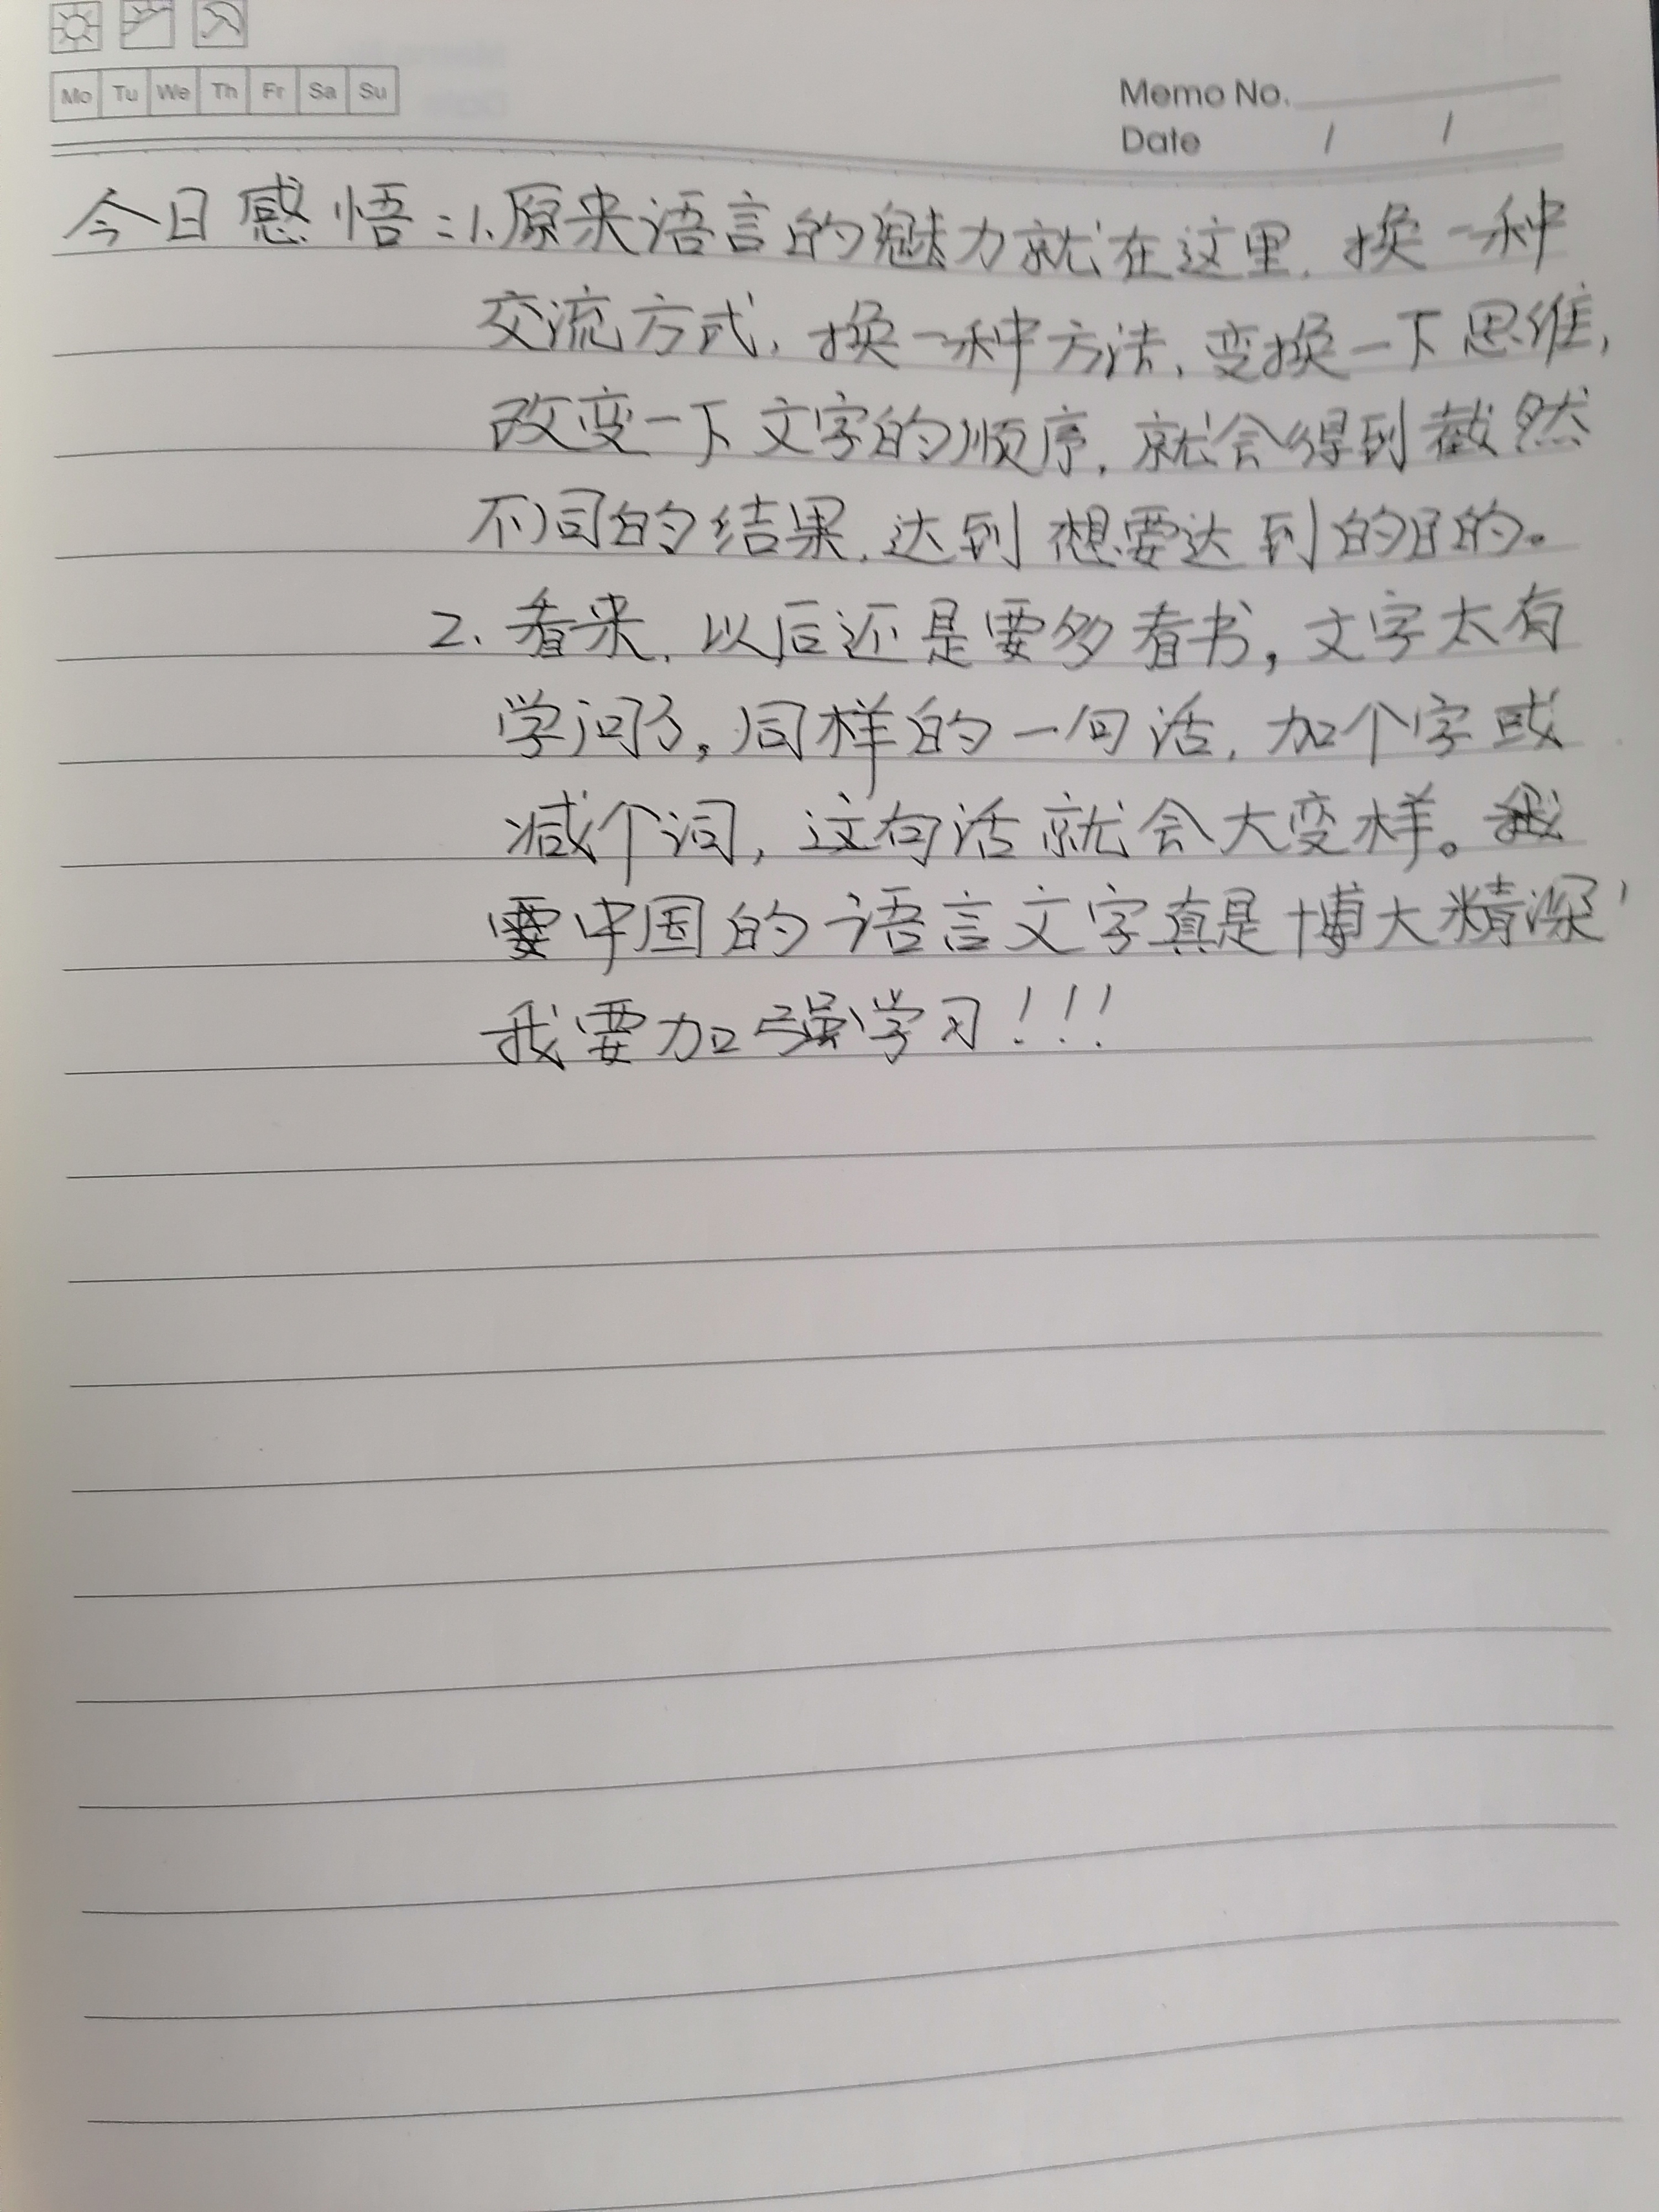 Mo Tu We Th Fr Sa Su
Memo No.
Date / /
今日感悟：1.原来语言的魅力就在这里，换一种
交流方式，换一种方法，变换一下思维，
改变一下文字的顺序，就会得到截然
不同的结果，达到想要达到的目的。
2.看来，以后还是要多看书，文字太有
学问了，同样的一句话，加个字或
减个词，这句话就会大变样。
中国的语言文字真是博大精深，
我要加强学习！！！